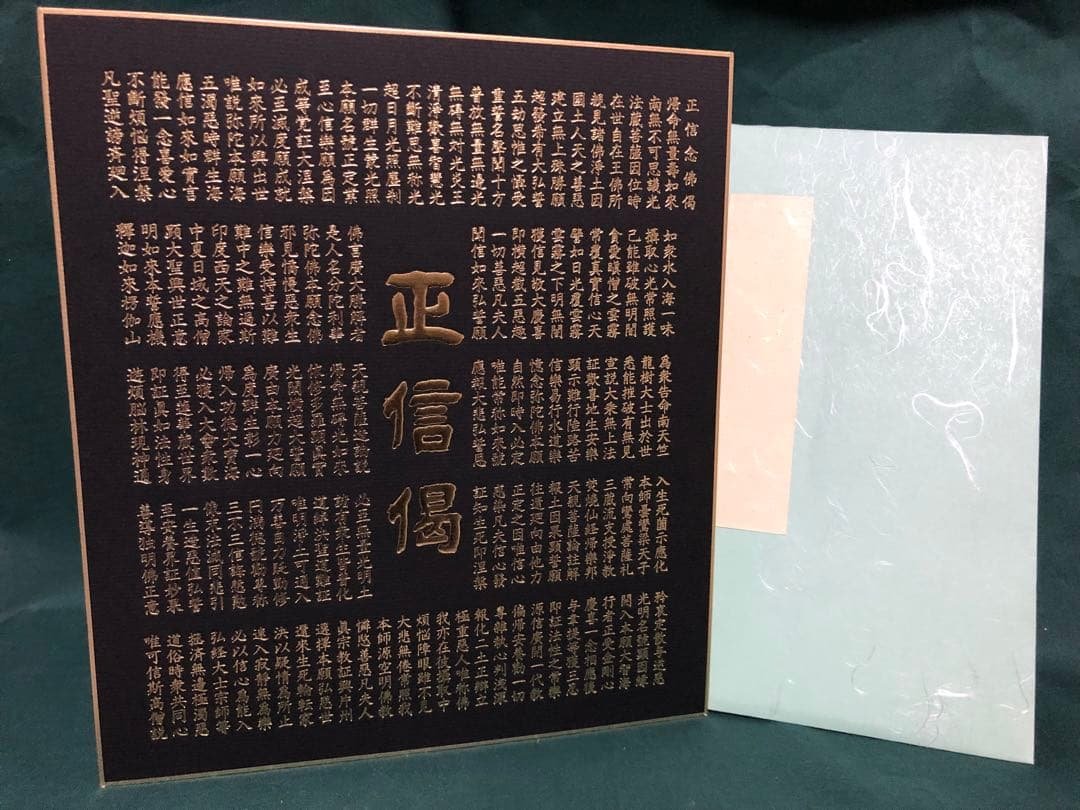 正信偈
正信念佛偈
帰命無量壽如來
南無不可思議光
法蔵菩薩因位時
在世自在王佛所
覩見諸佛淨土因
國土人天之善惡
建立無上殊勝願
超發希有大弘誓
五劫思惟之攝受
重誓名聲聞十方
普放無量無邊光
無碍無對光炎王
清淨歡喜智慧光
不斷難思無稱光
超日月光照塵刹
一切群生蒙光照
本願名號正定業
至心信樂願為因
成等覚証大涅槃
必至滅度願成就
如來所以興出世
唯説弥陀本願海
五濁惡時群生海
應信如來如實言
能發一念喜愛心
不斷煩悩得涅槃
凡聖逆謗斉廻入
如衆水入海一味
攝取心光常照護
已能雖破無明闇
貪愛瞋憎之雲霧
常覆真實信心天
譬如日光覆雲霧
雲霧之下明無闇
獲信見敬大慶喜
即横超截五惡趣
一切善惡凡夫人
聞信如來弘誓願
佛言廣大勝解者
是人名分陀利華
弥陀佛本願念佛
邪見憍慢惡衆生
信樂受持甚以難
難中之難無過斯
印度西天之論家
中夏日域之高僧
顕大聖興世正意
明如來本誓應機
釋迦如來楞伽山
為衆告命南天竺
龍樹大士出於世
悉能摧破有無見
宣説大乗無上法
証歓喜地生安樂
顕示難行陸路苦
信樂易行水道樂
憶念弥陀佛本願
自然即時入必定
唯能常称如來號
應報大悲弘誓恩
天親菩薩造論説
帰命無碍光如來
依修多羅顕真實
光闡横超大誓願
廣由本願力廻向
為度群生彰一心
帰入功徳大寳海
必獲入大會衆數
得至蓮華蔵世界
即証真如法性身
遊煩悩林現神通
入生死薗示應化
本師曇鸞梁天子
常向鸞處菩薩礼
三蔵流支授淨教
焚焼仙経帰樂邦
天親菩薩論註解
報土因果顕誓願
往還廻向由他力
正定之因唯信心
惑染凡夫信心發
証知生死即涅槃
必至無量光明土
諸有衆生皆普化
道綽決聖道難証
唯明淨土可通入
万善自力貶勤修
円満徳號勧專称
三不三信誨慇懃
像末法滅同悲引
一生造惡値弘誓
至安養界証妙果
善導独明佛正意
矜哀定散與逆惡
光明名號顕因縁
開入本願大智海
行者正受金剛心
慶喜一念相應後
與韋提等獲三忍
即証法性之常樂
源信廣開一代教
偏帰安養勧一切
專雜執心判淺深
報化二土正辨立
極重惡人唯称佛
我亦在彼攝取中
煩悩障眼雖不見
大悲無倦常照我
本師源空明佛教
憐愍善惡凡夫人
真宗教証興片州
選擇本願弘惡世
還來生死輪転家
決以疑情為所止
速入寂静無為樂
必以信心為能入
弘経大士宗師等
拯濟無邊極濁惡
道俗時衆共同心
唯可信斯高僧説